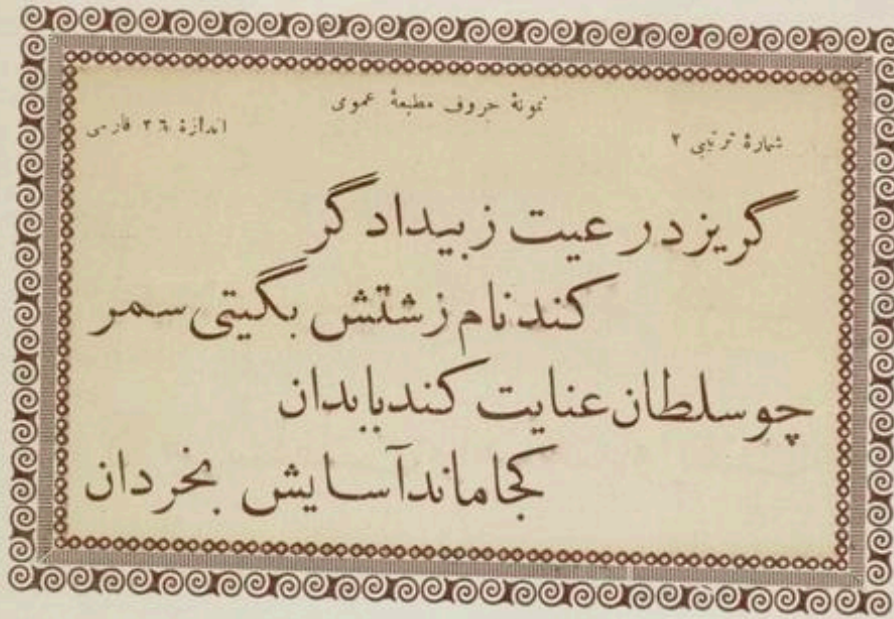 نمونهٔ حروف مطبعهٔ عموی
شمارهٔ ترتیبی ۲
اندازهٔ ۳٦ فارسی
گریزد رعیت ز بیدادگر
کند نام زشتش بگیتی سمر
چو سلطان عنایت کند بابدان
کجا ماند آسایش بخردان